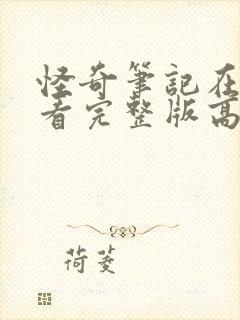 怪奇筆記在
看完整版高
荷蔆